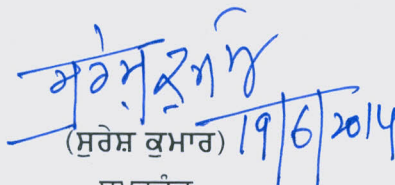 ਸੁਰੇਸ਼ ਕੁਮਾਰ
(ਸੁਰੇਸ਼ ਕੁਮਾਰ) 19/6/2014